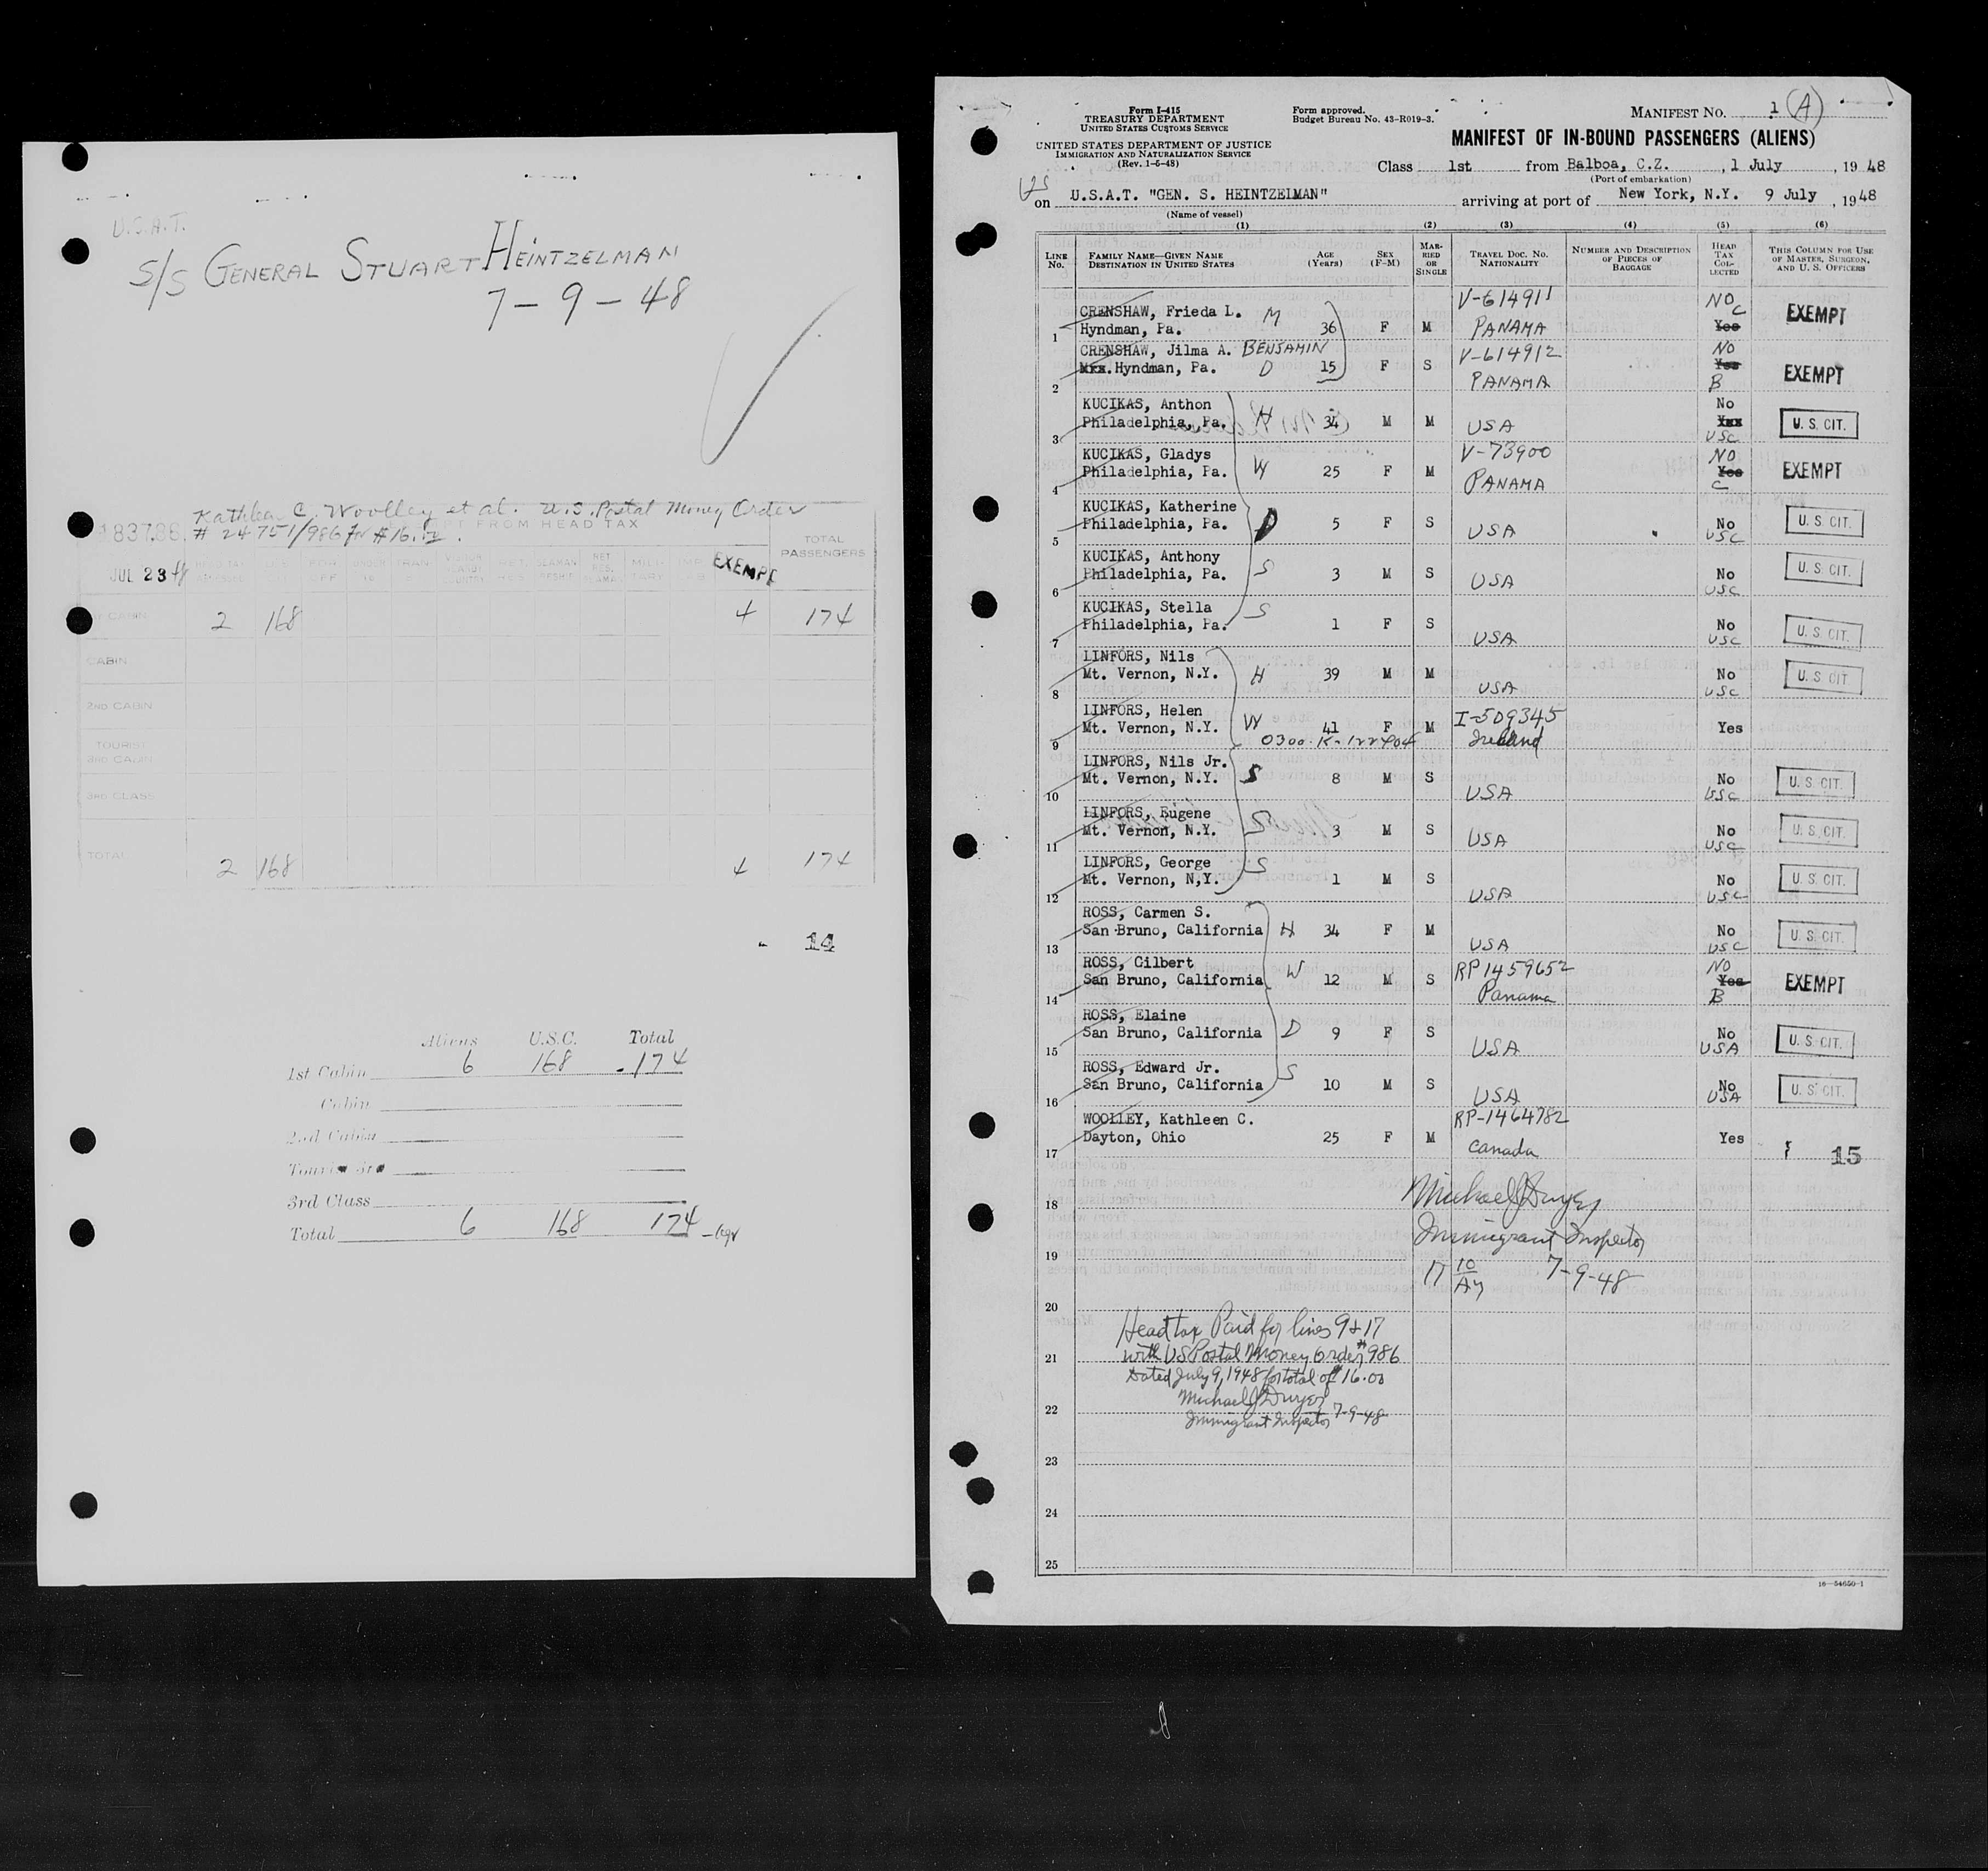 U.S.A.T.
S/S GENERAL STUART HEINTZELMAN
7-9-48
Kathleen C. Woolley et al. U.S. Postal Money Order
183786 # 24751/986 for $16.00.
FROM HEAD TAX
JUL 23 48
EXEMPT TOTAL PASSENGERS
CABIN 2 168 4 174
CABIN
2ND CABIN
TOURIST
3RD CABIN
3RD CLASS
TOTAL 2 168 4 174
14
Aliens U.S.C. Total
1st Cabin 6 168 174
Cabin
2nd Cabin
3rd Class
Total 6 168 174
Form I-415
TREASURY DEPARTMENT
UNITED STATES CUSTOMS SERVICE
UNITED STATES DEPARTMENT OF JUSTICE
IMMIGRATION AND NATURALIZATION SERVICE
(Rev. 1-5-48)
Form approved.
Budget Bureau No. 43-R019-3.
MANIFEST NO. 1 (A)
MANIFEST OF IN-BOUND PASSENGERS (ALIENS)
Class 1st from Balboa, C.Z., 1 July, 1948
(Port of embarkation)
on U.S.A.T. "GEN. S. HEINTZELMAN" arriving at port of New York, N.Y. 9 July, 1948
(Name of vessel)
(1) (2) (3) (4) (5) (6)
LINE No. FAMILY NAME—GIVEN NAME DESTINATION IN UNITED STATES AGE (Years) SEX (F-M) MARRIED OR SINGLE TRAVEL DOC. NO. NATIONALITY NUMBER AND DESCRIPTION OF PIECES OF BAGGAGE HEAD TAX COLLECTED THIS COLUMN FOR USE OF MASTER, SURGEON, AND U. S. OFFICERS
CRENSHAW, Frieda L. M V-614911 NO C EXEMPT
1 Hyndman, Pa. 36 F M PANAMA Yes
CRENSHAW, Jilma A. BENJAMIN V-614912 NO
2 Mrs. Hyndman, Pa. D 15 F S PANAMA Yes B EXEMPT
KUCIKAS, Anthon No
3 Philadelphia, Pa. H 34 M M USA Yes USC U. S. CIT.
KUCIKAS, Gladys V-73900 NO
4 Philadelphia, Pa. W 25 F M PANAMA Yes C EXEMPT
KUCIKAS, Katherine
5 Philadelphia, Pa. D 5 F S USA No USC U. S. CIT.
KUCIKAS, Anthony
6 Philadelphia, Pa. S 3 M S USA No USC U. S. CIT.
KUCIKAS, Stella
7 Philadelphia, Pa. S 1 F S USA No USC U. S. CIT.
LINFORS, Nils
8 Mt. Vernon, N.Y. H 39 M M USA No USC U. S. CIT.
LINFORS, Helen I-509345
9 Mt. Vernon, N.Y. W 41 F M Ireland Yes
0300-K-122404
LINFORS, Nils Jr.
10 Mt. Vernon, N.Y. S 8 M S USA No USC U. S. CIT.
LINFORS, Eugene
11 Mt. Vernon, N.Y. S 3 M S USA No USC U. S. CIT.
LINFORS, George
12 Mt. Vernon, N,Y. S 1 M S USA No USC U. S. CIT.
ROSS, Carmen S.
13 San Bruno, California H 34 F M USA No USC U. S. CIT.
ROSS, Gilbert RP 1459652 NO
14 San Bruno, California W 12 M S Panama Yes B EXEMPT
ROSS, Elaine
15 San Bruno, California D 9 F S USA No USA U. S. CIT.
ROSS, Edward Jr.
16 San Bruno, California S 10 M S USA No USA U. S. CIT.
WOOLLEY, Kathleen C. RP-1464782
17 Dayton, Ohio 25 F M Canada Yes 15
18 Michael J Dwyer
19 Immigrant Inspector
17 10/Ay 7-9-48
20
Head tax Paid for lines 9 & 17
21 with US Postal Money Order #986
Dated July 9, 1948 for total of $16.00
Michael J Dwyer
22 Immigrant Inspector 7-9-48
23
24
25
16—54650-1